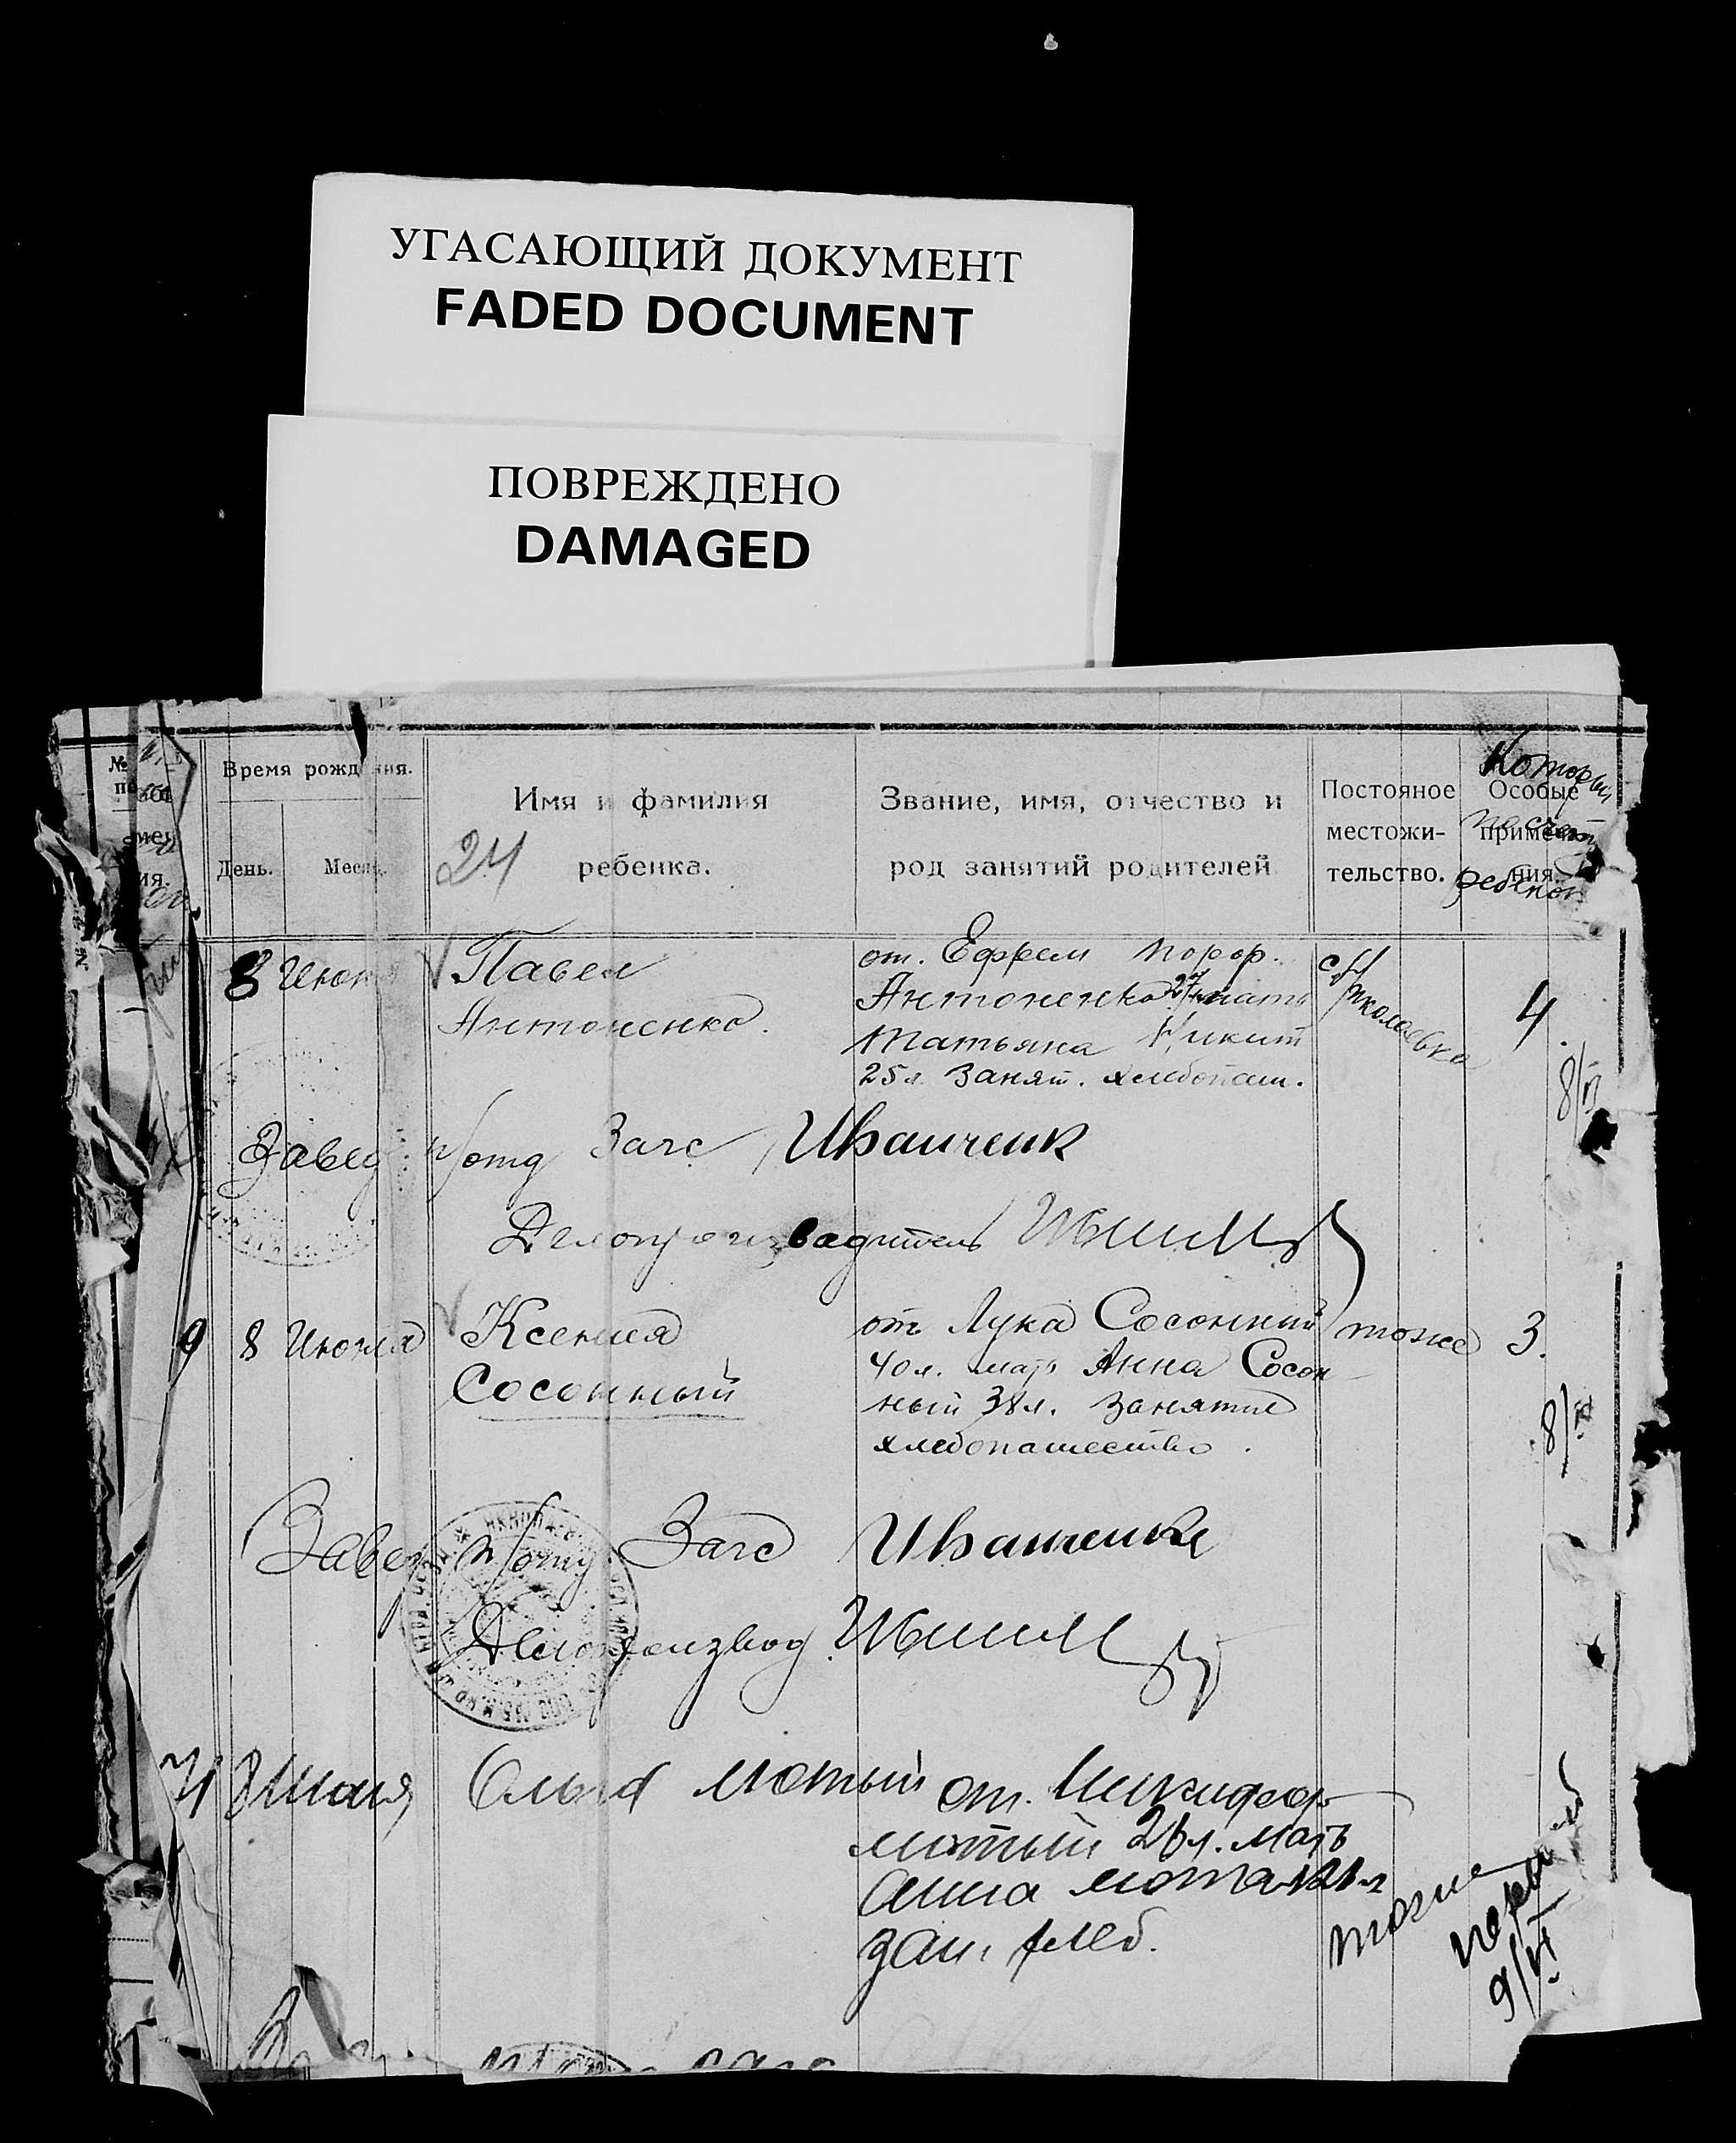 УГАСАЮЩИЙ ДОКУМЕНТ
FADED DOCUMENT
ПОВРЕЖДЕНО
DAMAGED
№
Время рождения.
День.
Месяц.
Имя и фамилия
ребенка.
24
Звание, имя, отчество и
род занятий родителей
Постояное
местожи-
тельство.
Особые
примеча-
ния.
Который
по счету
ребенок
8 Июня
Павел
Антоненко.
от. Ефрем
Антоненко 27 мать
Татьяна Никит
25 л. Занят. хлебопаш.
с. Николаевка
4.
8/VI
Завед п/отд Загс Иванченк
Делопроизводитель
9 8 Июня
Ксения
Сосонный
от Лука Сосонный
40 л. мать Анна Сосон
ный 38 л. Занятие
хлебопашество.
тоже
3.
8/VI
Завед п/отд Загс Иванченко
Делопроизвод.
8 Июня
Ольга Лютый
от. Никифор
лютый 26 л. мать
Анна люта 21 л
зан. хлеб.
тоже
9/VI